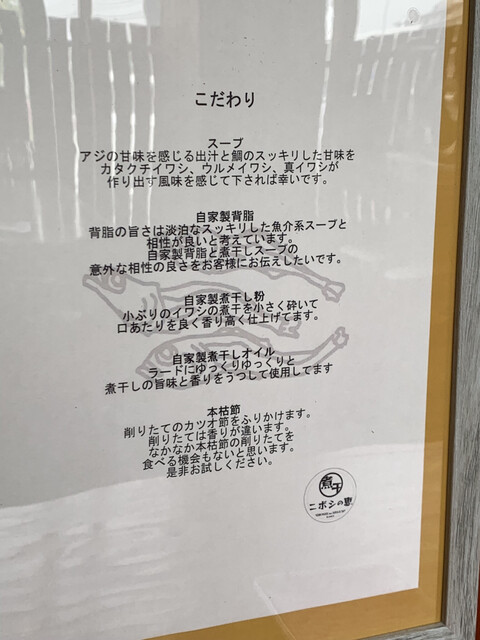 こだわり
スープ
アジの甘味を感じる出汁と鯛のスッキリした甘味を
カタクチイワシ、ウルメイワシ、真イワシが
作り出す風味を感じて下されば幸いです。
自家製背脂
背脂の旨さは淡泊なスッキリした魚介系スープと
相性が良いと考えています。
自家製背脂と煮干しスープの
意外な相性の良さをお客様にお伝えしたいです。
自家製煮干し粉
小ぶりのイワシの煮干を小さく砕いて
口あたりを良く香り高く仕上げてます。
自家製煮干しオイル
ラードにゆっくりゆっくりと
煮干しの旨味と香りをうつして使用してます
本枯節
削りたてのカツオ節をふりかけます。
削りたては香りが違います。
なかなか本枯節の削りたてを
食べる機会もないと思います。
是非お試しください。
煮干
ニボシの恵